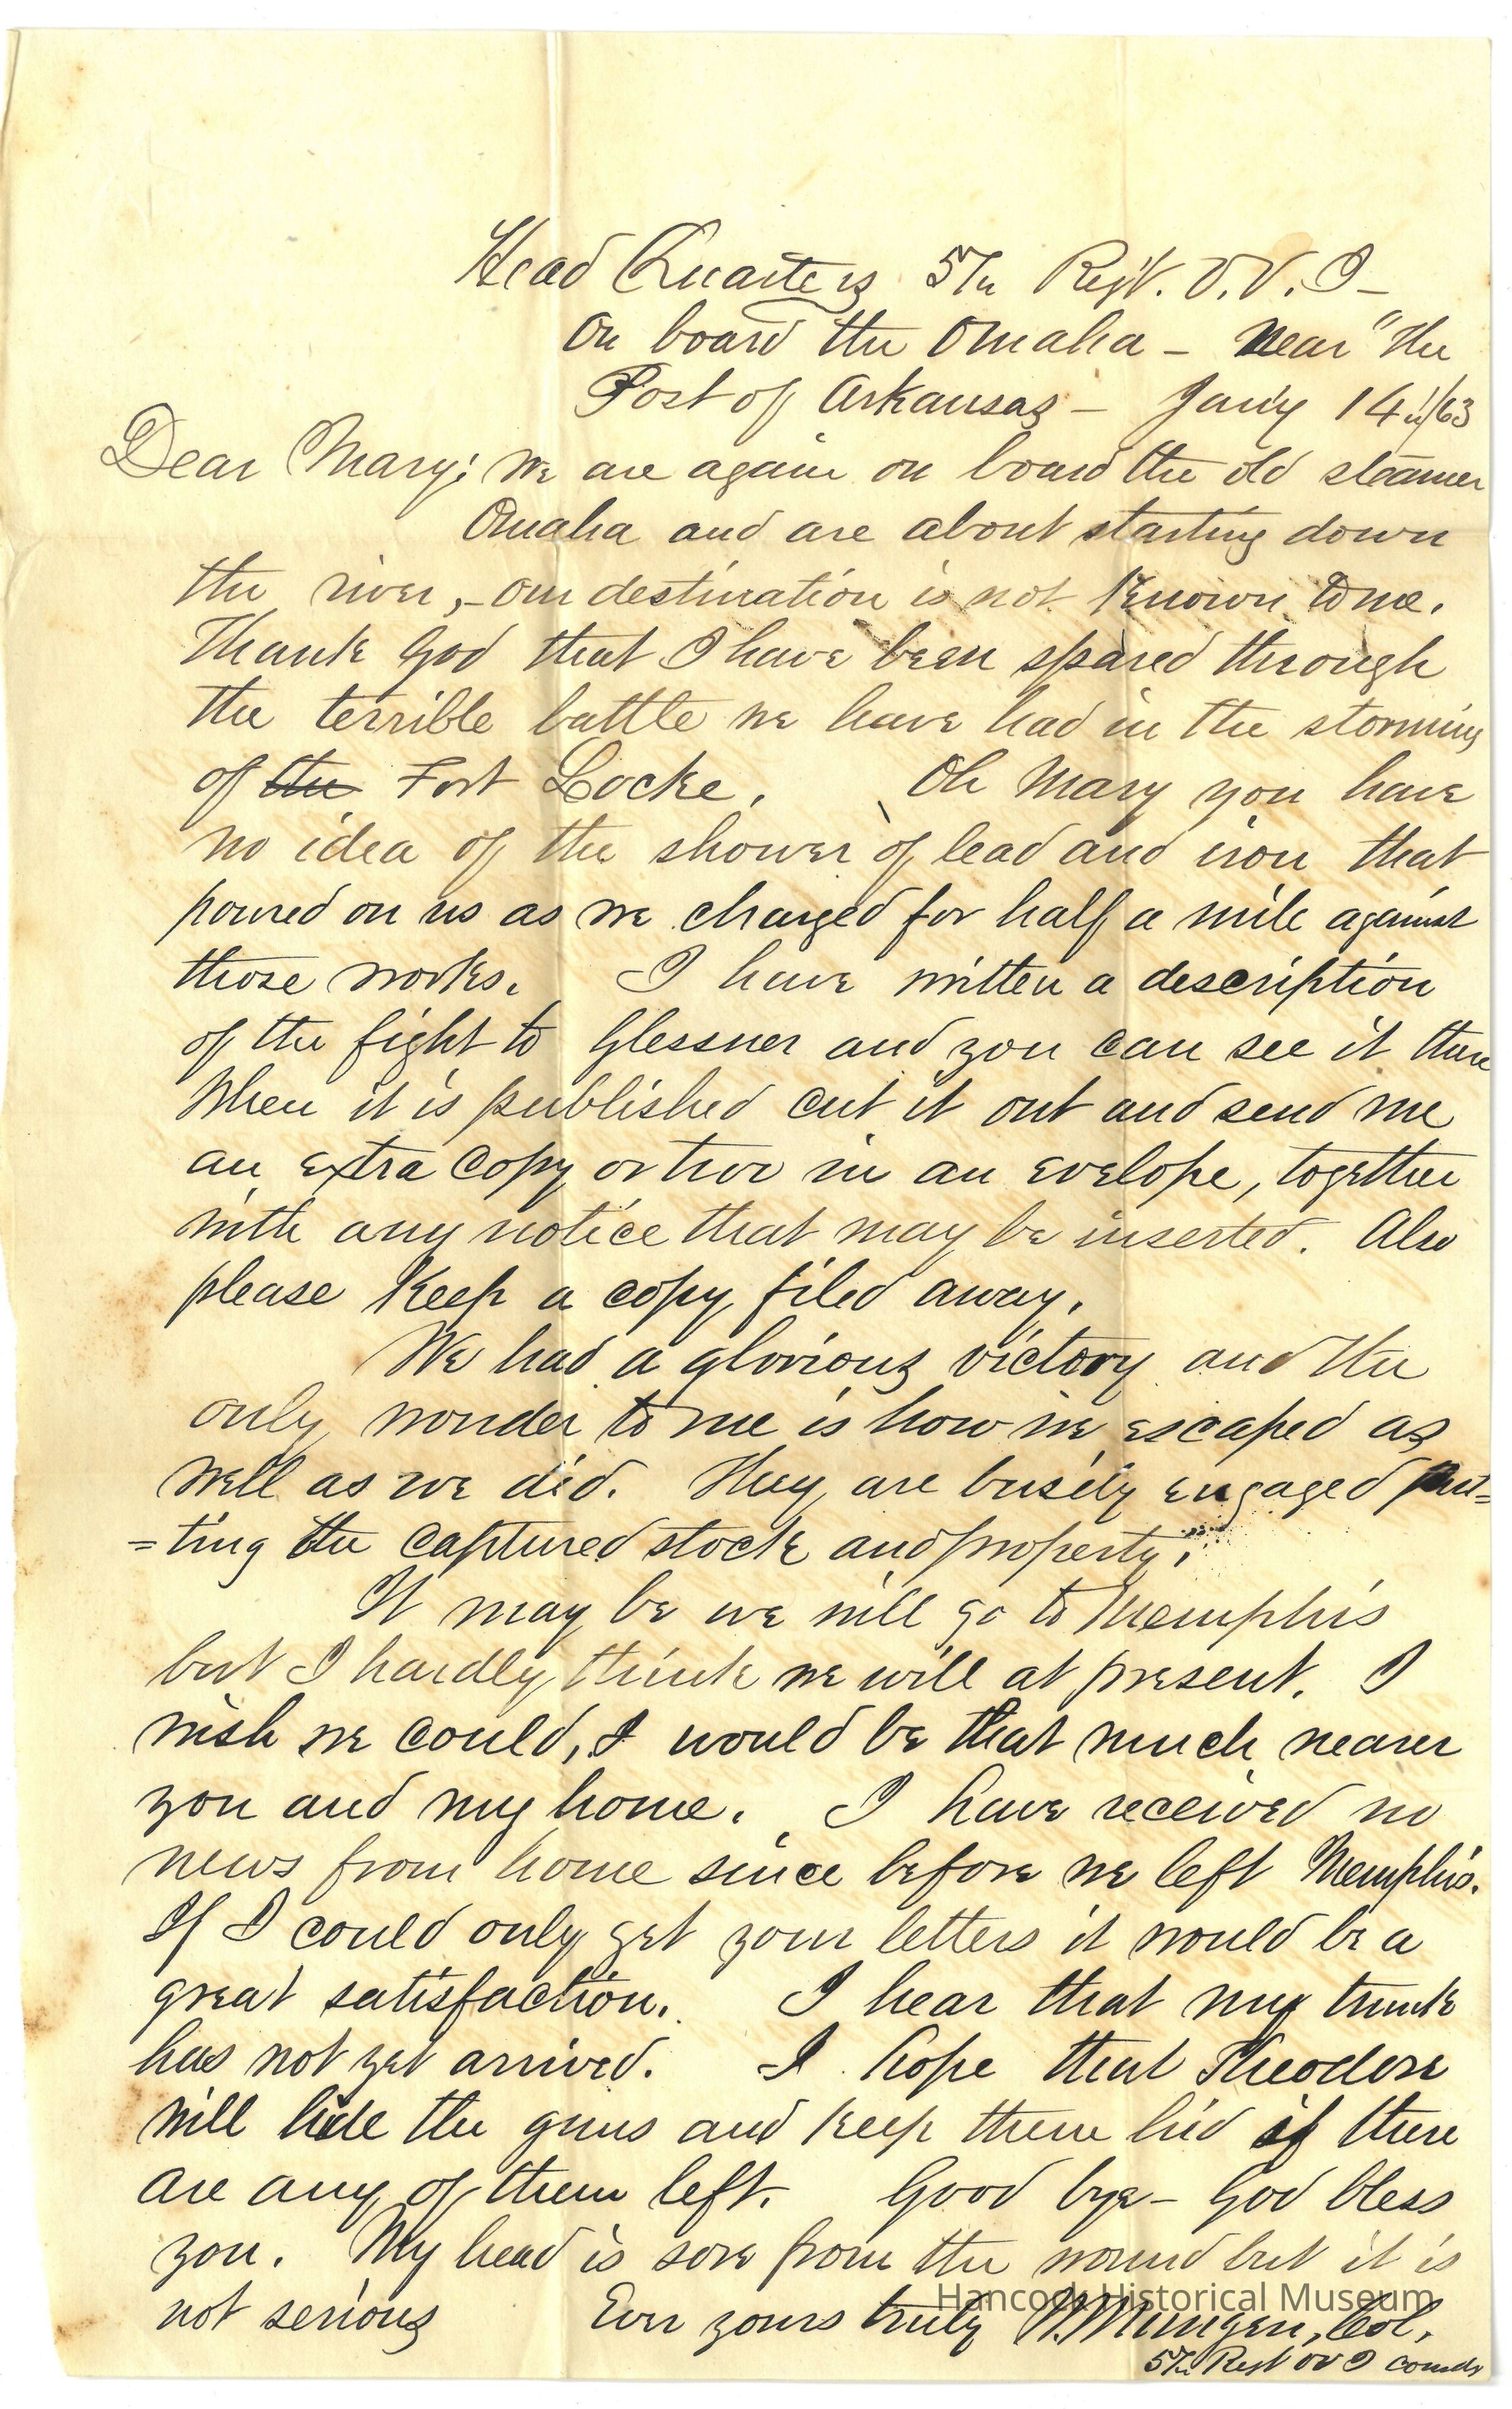 Head Quarters 57th Regt. O.V.I —
On board the Omaha — Near "the
Post of Arkansas — Jan'y 14th/63
Dear Mary; We are again on board the old steamer
Omaha and are about starting down
the river, - our destination is not known to me.
Thank God that I have been spared through
the terrible battle we have had in the storming
of the Fort Locke. Oh Mary you have
no idea of the shower of lead and iron that
poured on us as we charged for half a mile against
those works. I have written a description
of the fight to Glessner and you can see it there
When it is published cut it out and send me
an extra copy or two in an evelope, together
with any notice that may be inserted. Also
please keep a copy filed away.
We had a glorious victory and the
only wonder to me is how we escaped as
well as we did. They are busily engaged put=
=ting the captured stock and property.
It may be we will go to Memphis
but I hardly think we will at present. I
wish we could, I would be that much nearer
you and my home. I have received no
news from home since before we left Memphis.
If I could only get your letters it would be a
great satisfaction. I hear that my trunk
has not yet arrived. I hope that Theodore
will hide the guns and keep them hid if there
are any of them left. Good bye — God bless
you. My head is sore from the wound but it is
not serious Ever yours truly W. Mungen, Col,
57th Regt OVI comdg
Hancock Historical Museum